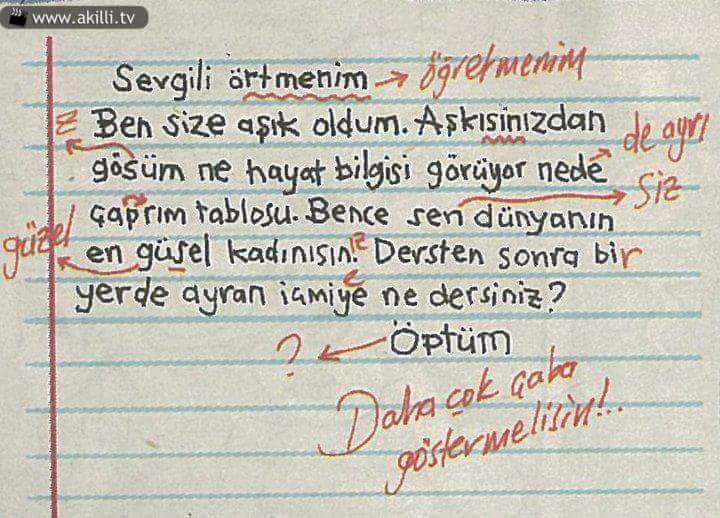 www.akilli.tv
Sevgili örtmenim → öğretmenim
z Ben size aşık oldum. Aşkısinizdan de ayrı
gösüm ne hayat bilgisi görüyor nede siz
çaprım tablosu. Bence sen dünyanın
güzel en güsel kadınısın! iz Dersten sonra bir
yerde ayran içmiye e ne dersiniz?
? ← Öptüm
Daha çok çaba
göstermelisin!..